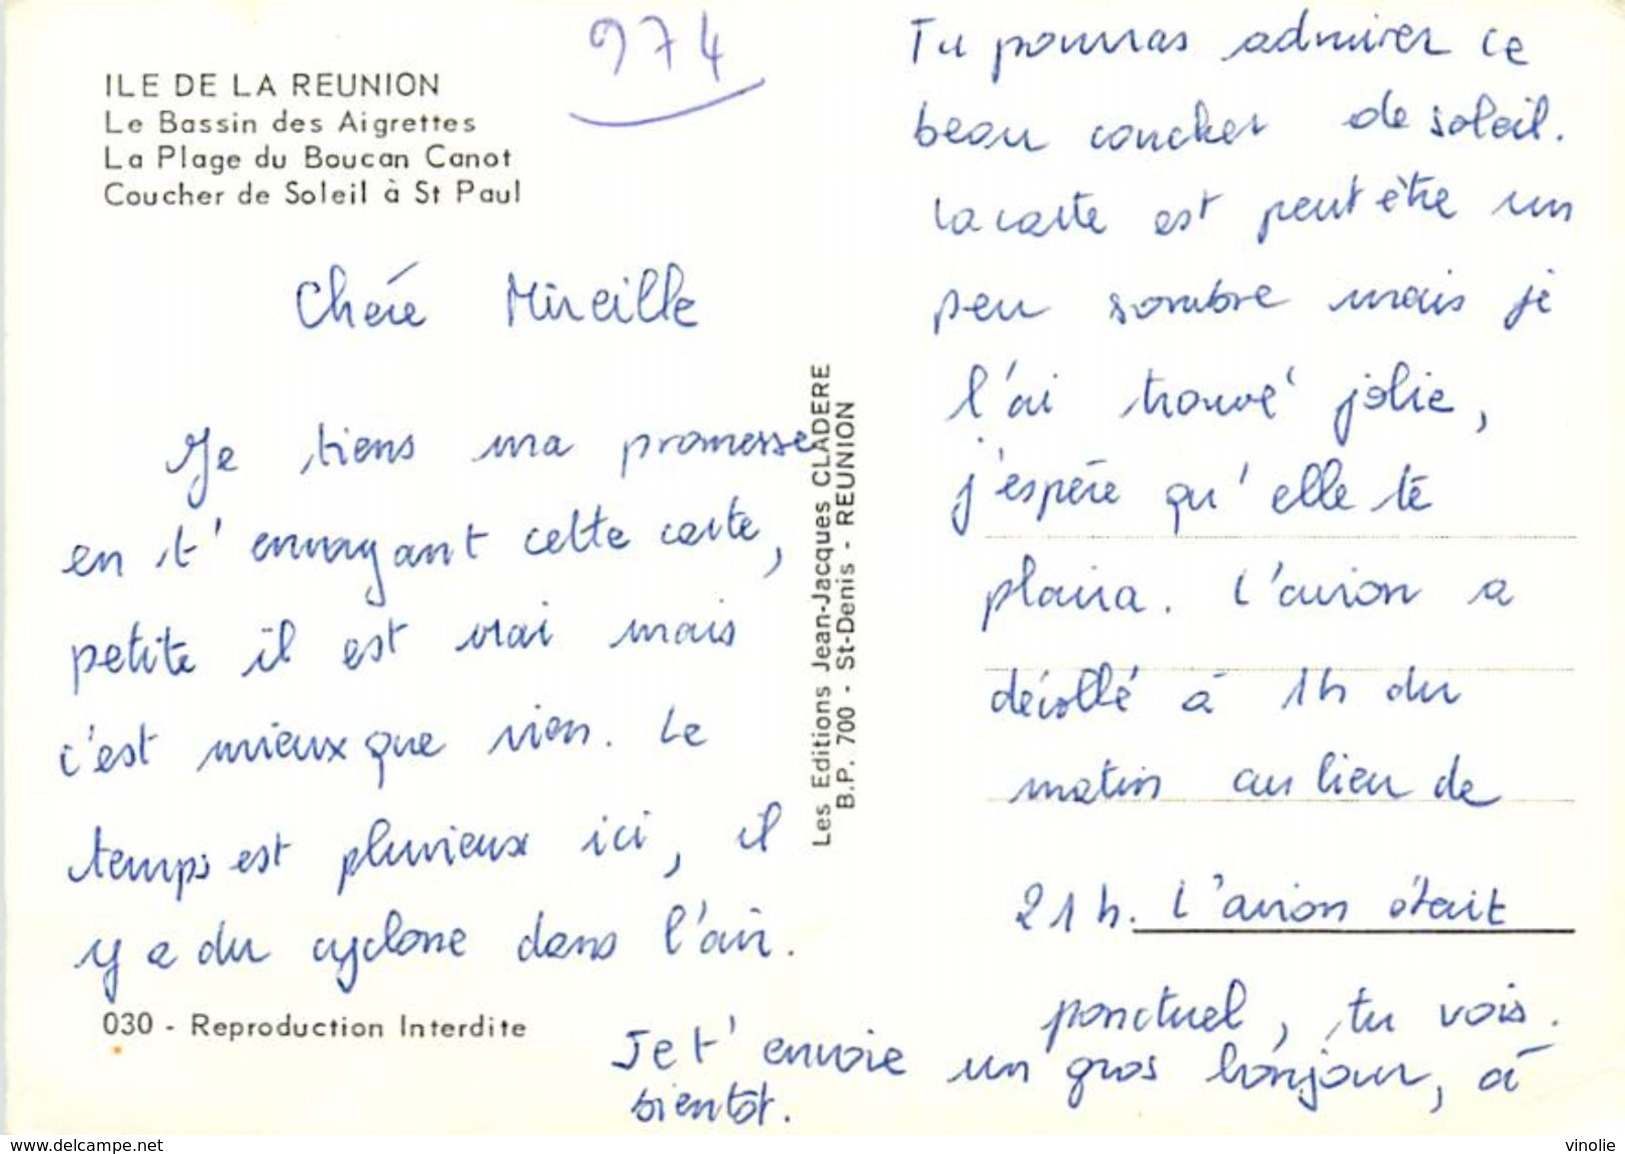 974
ILE DE LA REUNION
Le Bassin des Aigrettes
La Plage du Boucan Canot
Coucher de Soleil à St Paul
Chére Mireille
Je tiens ma promesse
en t'envoyant cette carte,
petite il est vrai mais
c'est mieux que rien. Le
temps est pluvieux ici, il
y a du cyclone dans l'air.
030 - Reproduction Interdite
Les Editions Jean-Jacques CLADERE
B.P. 700 - St-Denis - REUNION
Tu pourras admirer ce
beau coucher de soleil.
La carte est peut être un
peu sombre mais je
l'ai trouvé jolie,
j'espére qu'elle te
plaira. L'avion a
décollé à 1h du
matin au lieu de
21h. L'avion était
ponctuel, tu vois.
Je t'envoie un gros bonjour, à
bientôt.
www.delcampe.net
vinolie